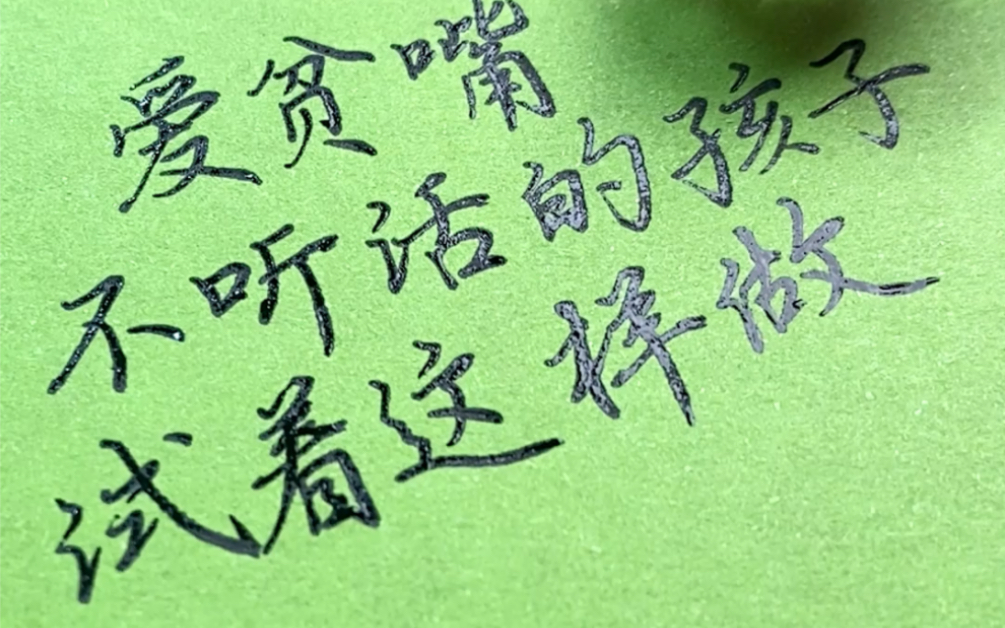 爱贫嘴
不听话的孩子
试着这样做